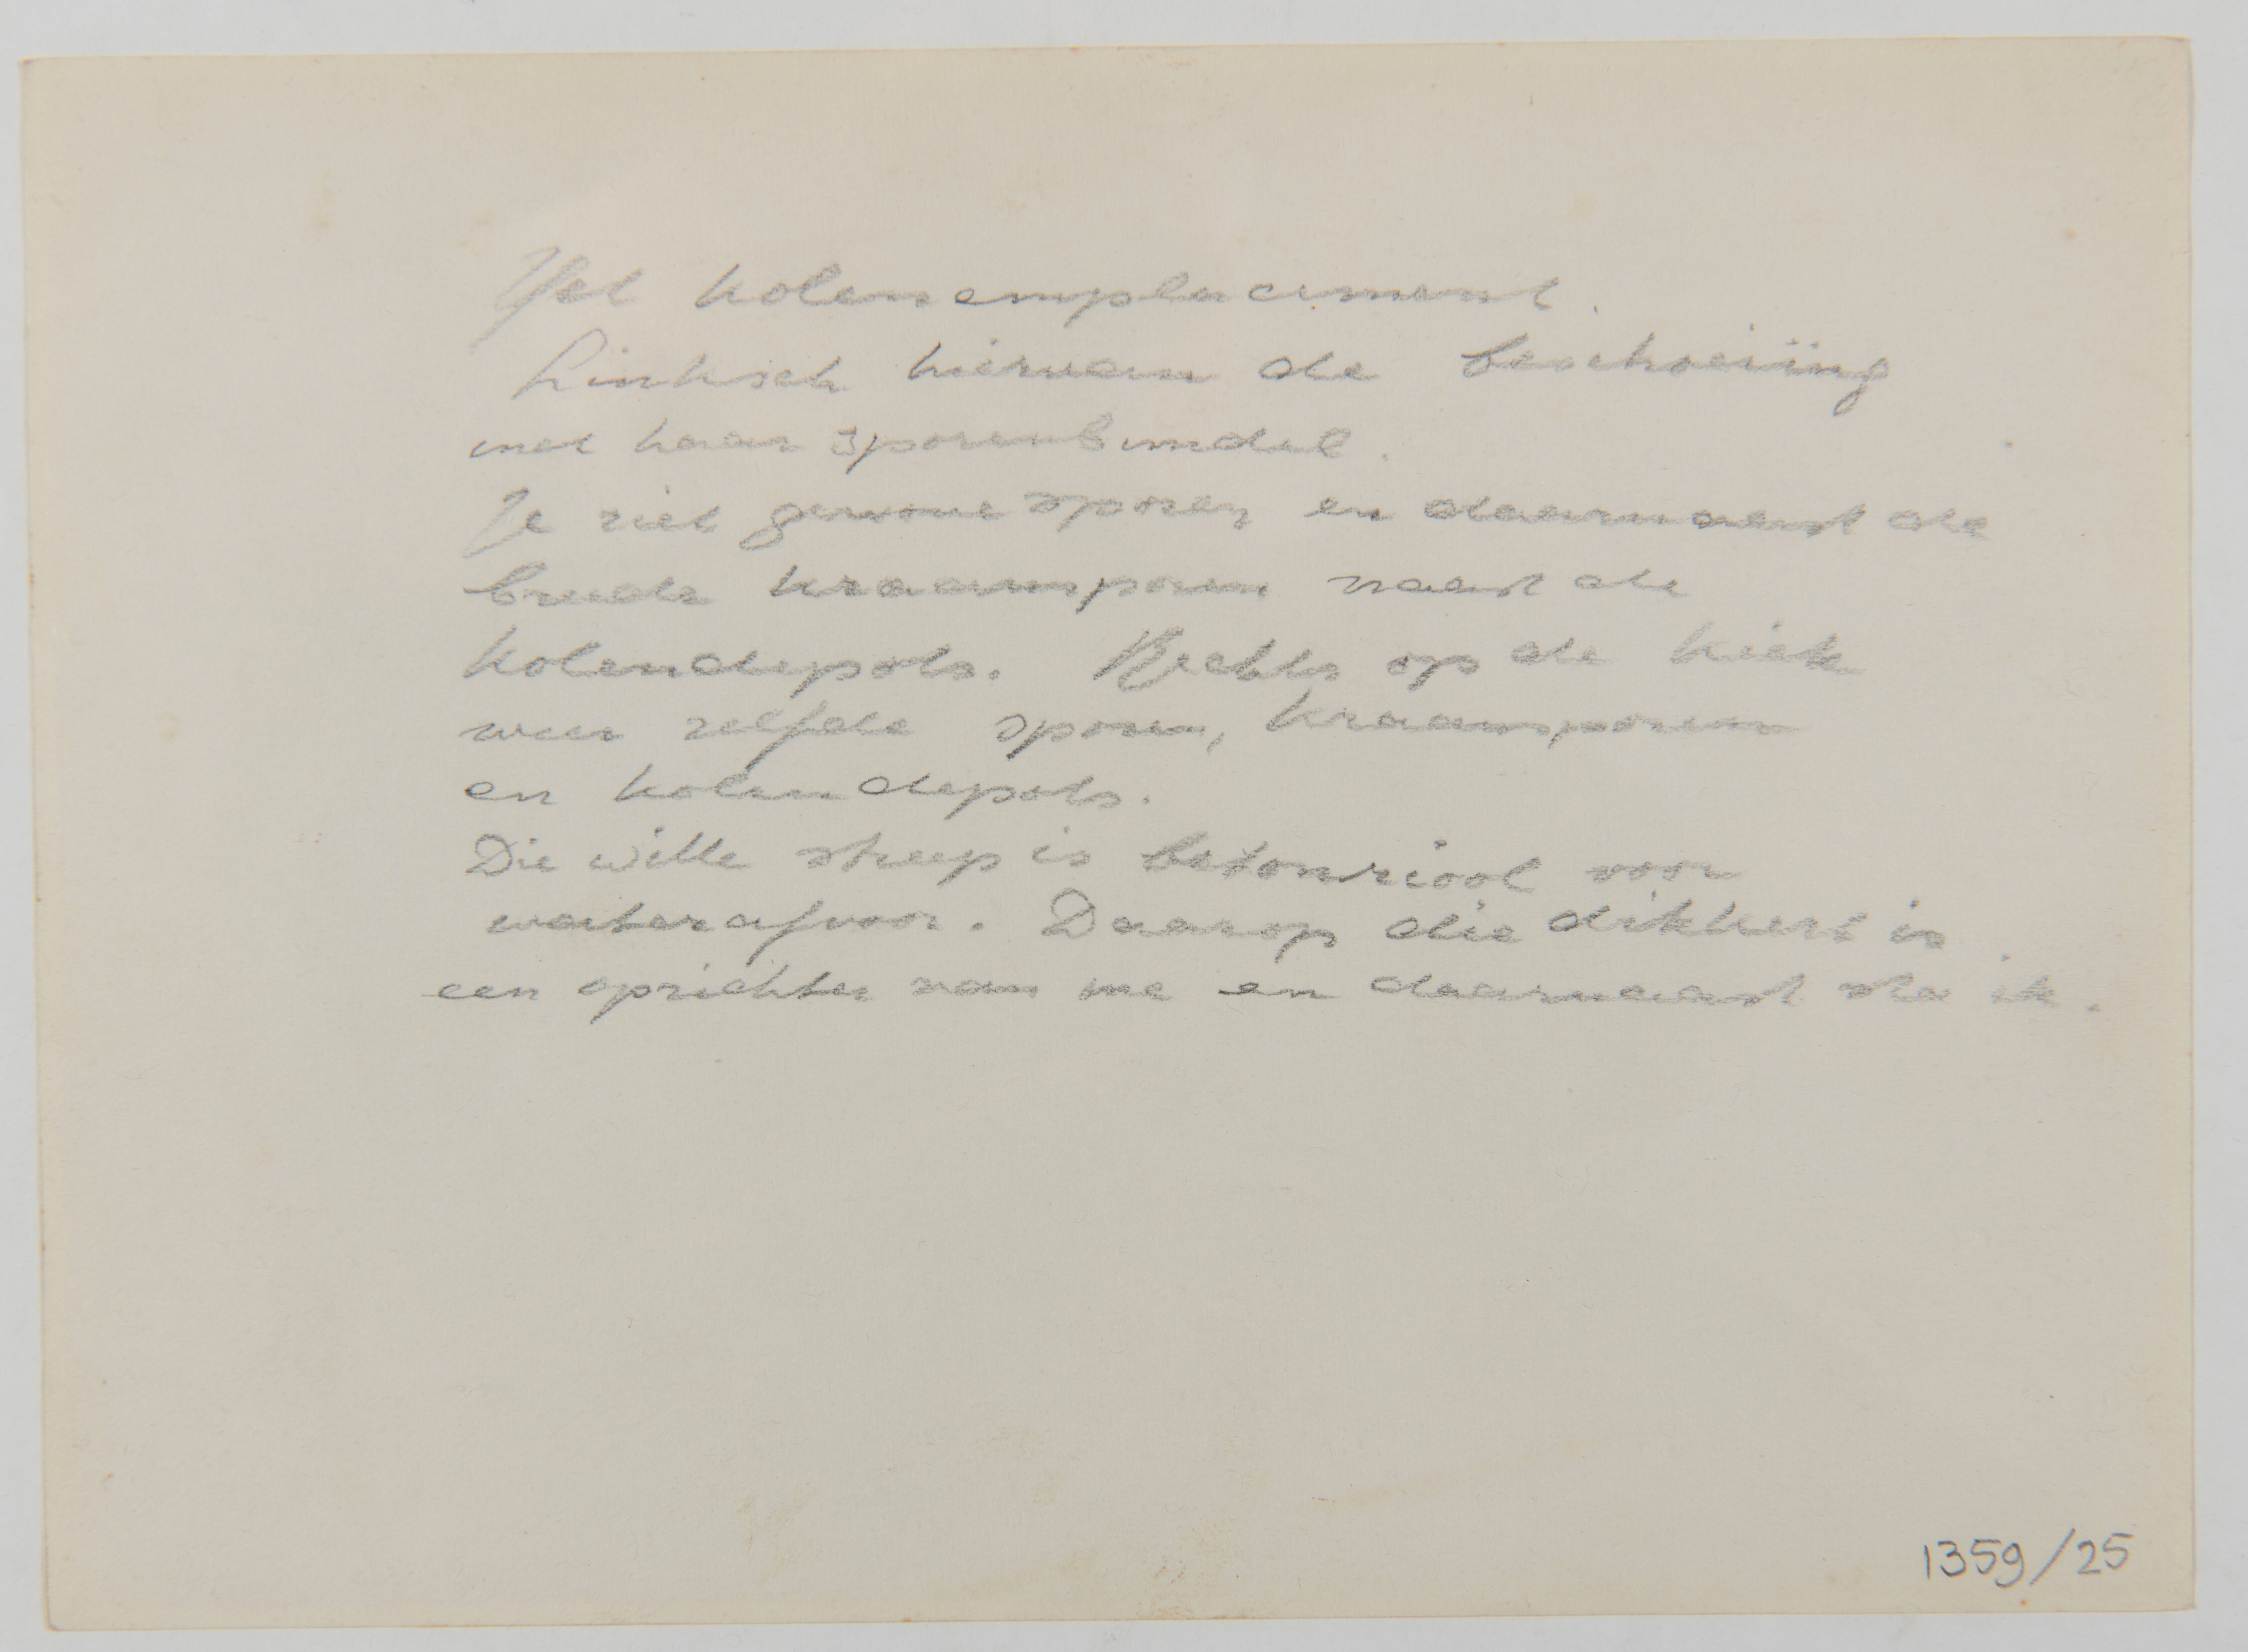 Het kolenemplacement.
Linksch hiervan de beschoeiïng
met haar sporenbundel.
Je ziet gewone sporen en daarnaast de
breede kraansporen naast de
kolendepots. Rechts op de kiek
weer zelfde sporen, kraansporen
en kolendepots.
Die witte streep is betonriool voor
waterafvoor. Daarop die dikkert is
een oprichter van me en daarnaast sta ik.
1359/25